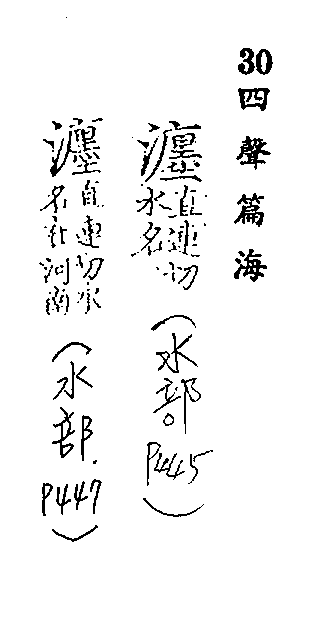 30四聲篇海
瀍直連切
水名
(水部。P445)
瀍直連切水
名在河南
(水部.P447)